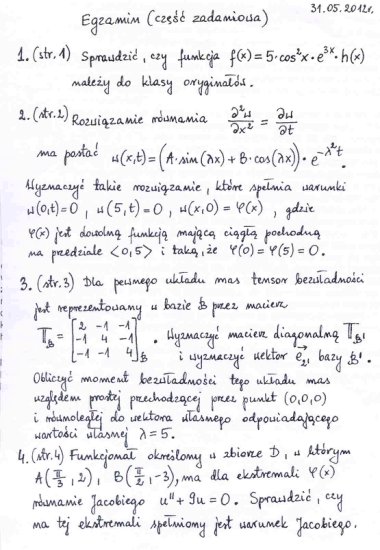 31.05.2012r.
Egzamin (część zadaniowa)
1. (str.1) Sprawdzić, czy funkcja f(x)=5·cos²x·e^{3x}·h(x)
należy do klasy oryginałów.
2. (str.2) Rozwiązanie równania ∂²u/∂x² = ∂u/∂t
ma postać u(x,t)=(A·sin(λx)+B·cos(λx))·e^{-λ²t}.
Wyznaczyć takie rozwiązanie, które spełnia warunki
u(0,t)=0, u(5,t)=0, u(x,0)=φ(x), gdzie
φ(x) jest dowolną funkcją mającą ciągłą pochodną
na przedziale <0,5> i taką, że φ(0)=φ(5)=0.
3. (str.3) Dla pewnego układu mas tensor bezwładności
jest reprezentowany w bazie B przez macierz
T_B = [2 -1 -1
-1 4 -1
-1 -1 4]_B. Wyznaczyć macierz diagonalną T_{B₁}
i wyznaczyć wektor e₂₁ bazy B₁.
Obliczyć moment bezwładności tego układu mas
względem prostej przechodzącej przez punkt (0,0,0)
i równoległej do wektora własnego odpowiadającego
wartości własnej λ=5.
4. (str.4) Funkcjonał określony w zbiorze D, w którym
A(π/3, 2), B(π/2, -3), ma dla ekstremali φ(x)
równanie Jacobiego u''+9u=0. Sprawdzić, czy
na tej ekstremali spełniony jest warunek Jacobiego.